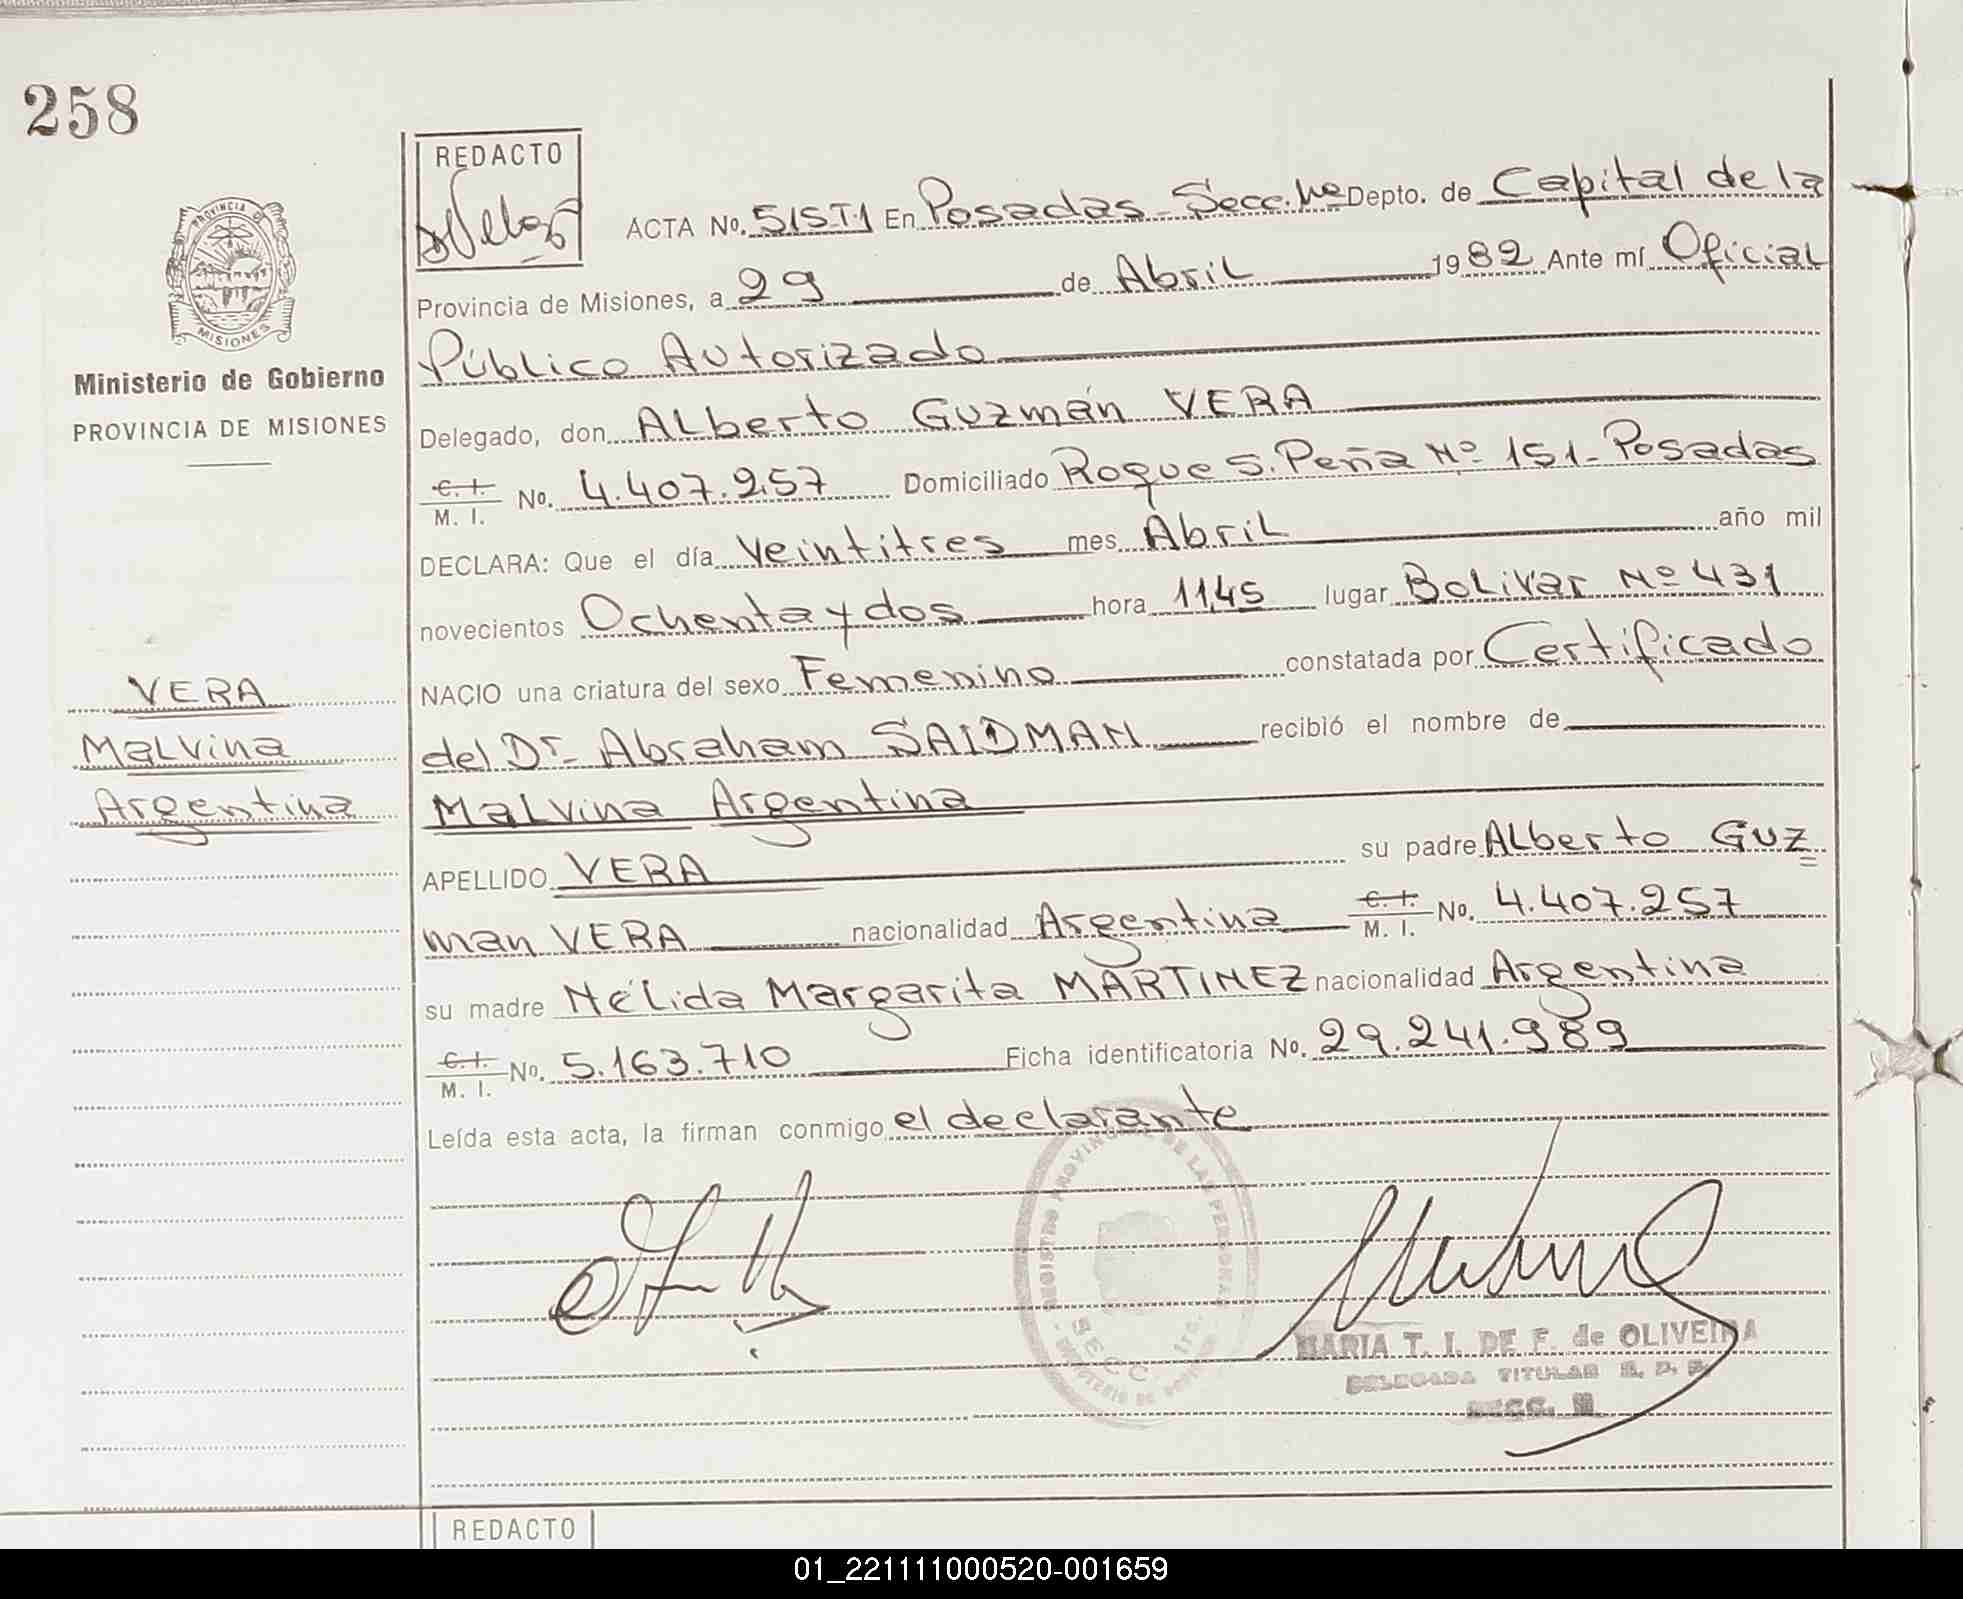 258
REDACTO
PROVINCIA DE
MISIONES
Ministerio de Gobierno
PROVINCIA DE MISIONES
VERA
Malvina
Argentina
ACTA No. 515T1 En Posadas - Secc. 1ra Depto. de Capital de la
Provincia de Misiones, a 29 de Abril 1982 Ante mí Oficial
Público Autorizado
Delegado, don Alberto Guzmán VERA
C. I.
M. I. No. 4.407.257 Domiciliado Roque S. Peña Nº 151 - Posadas
DECLARA: Que el día Veintitres mes Abril año mil
novecientos Ochenta y dos hora 11,45 lugar Bolivar Nº 431
NACIO una criatura del sexo Femenino constatada por Certificado
del Dr. Abraham SAIDMAN recibió el nombre de
Malvina Argentina
APELLIDO VERA su padre Alberto Guz
man VERA nacionalidad Argentina C. I.
M. I. No. 4.407.257
su madre Nélida Margarita MARTINEZ nacionalidad Argentina
C. I.
M. I. No. 5.163.710 Ficha identificatoria No. 29.241.989
Leída esta acta, la firman conmigo el declarante
REGISTRO PROVINCIAL DE LAS PERSONAS
SECC. 1ra.
MARIA T. I. DE F. de OLIVEIRA
DELEGADA TITULAR R. P. P.
SECC.
REDACTO
01_221111000520-001659